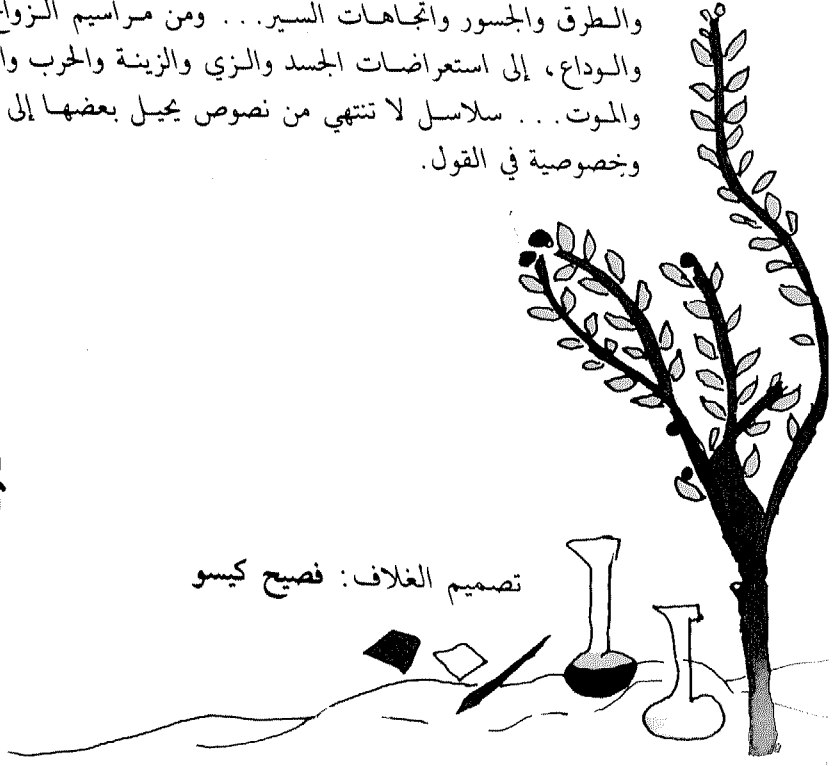 والطرق والجسور واتجاهات السير... ومن مراسيم الزواج
والوداع، إلى استعراضات الجسد والزي والزينة والحرب
والموت... سلاسل لا تنتهي من نصوص يحيل بعضها إلى
وخصوصية في القول.
تصميم الغلاف: فصيح كيسو